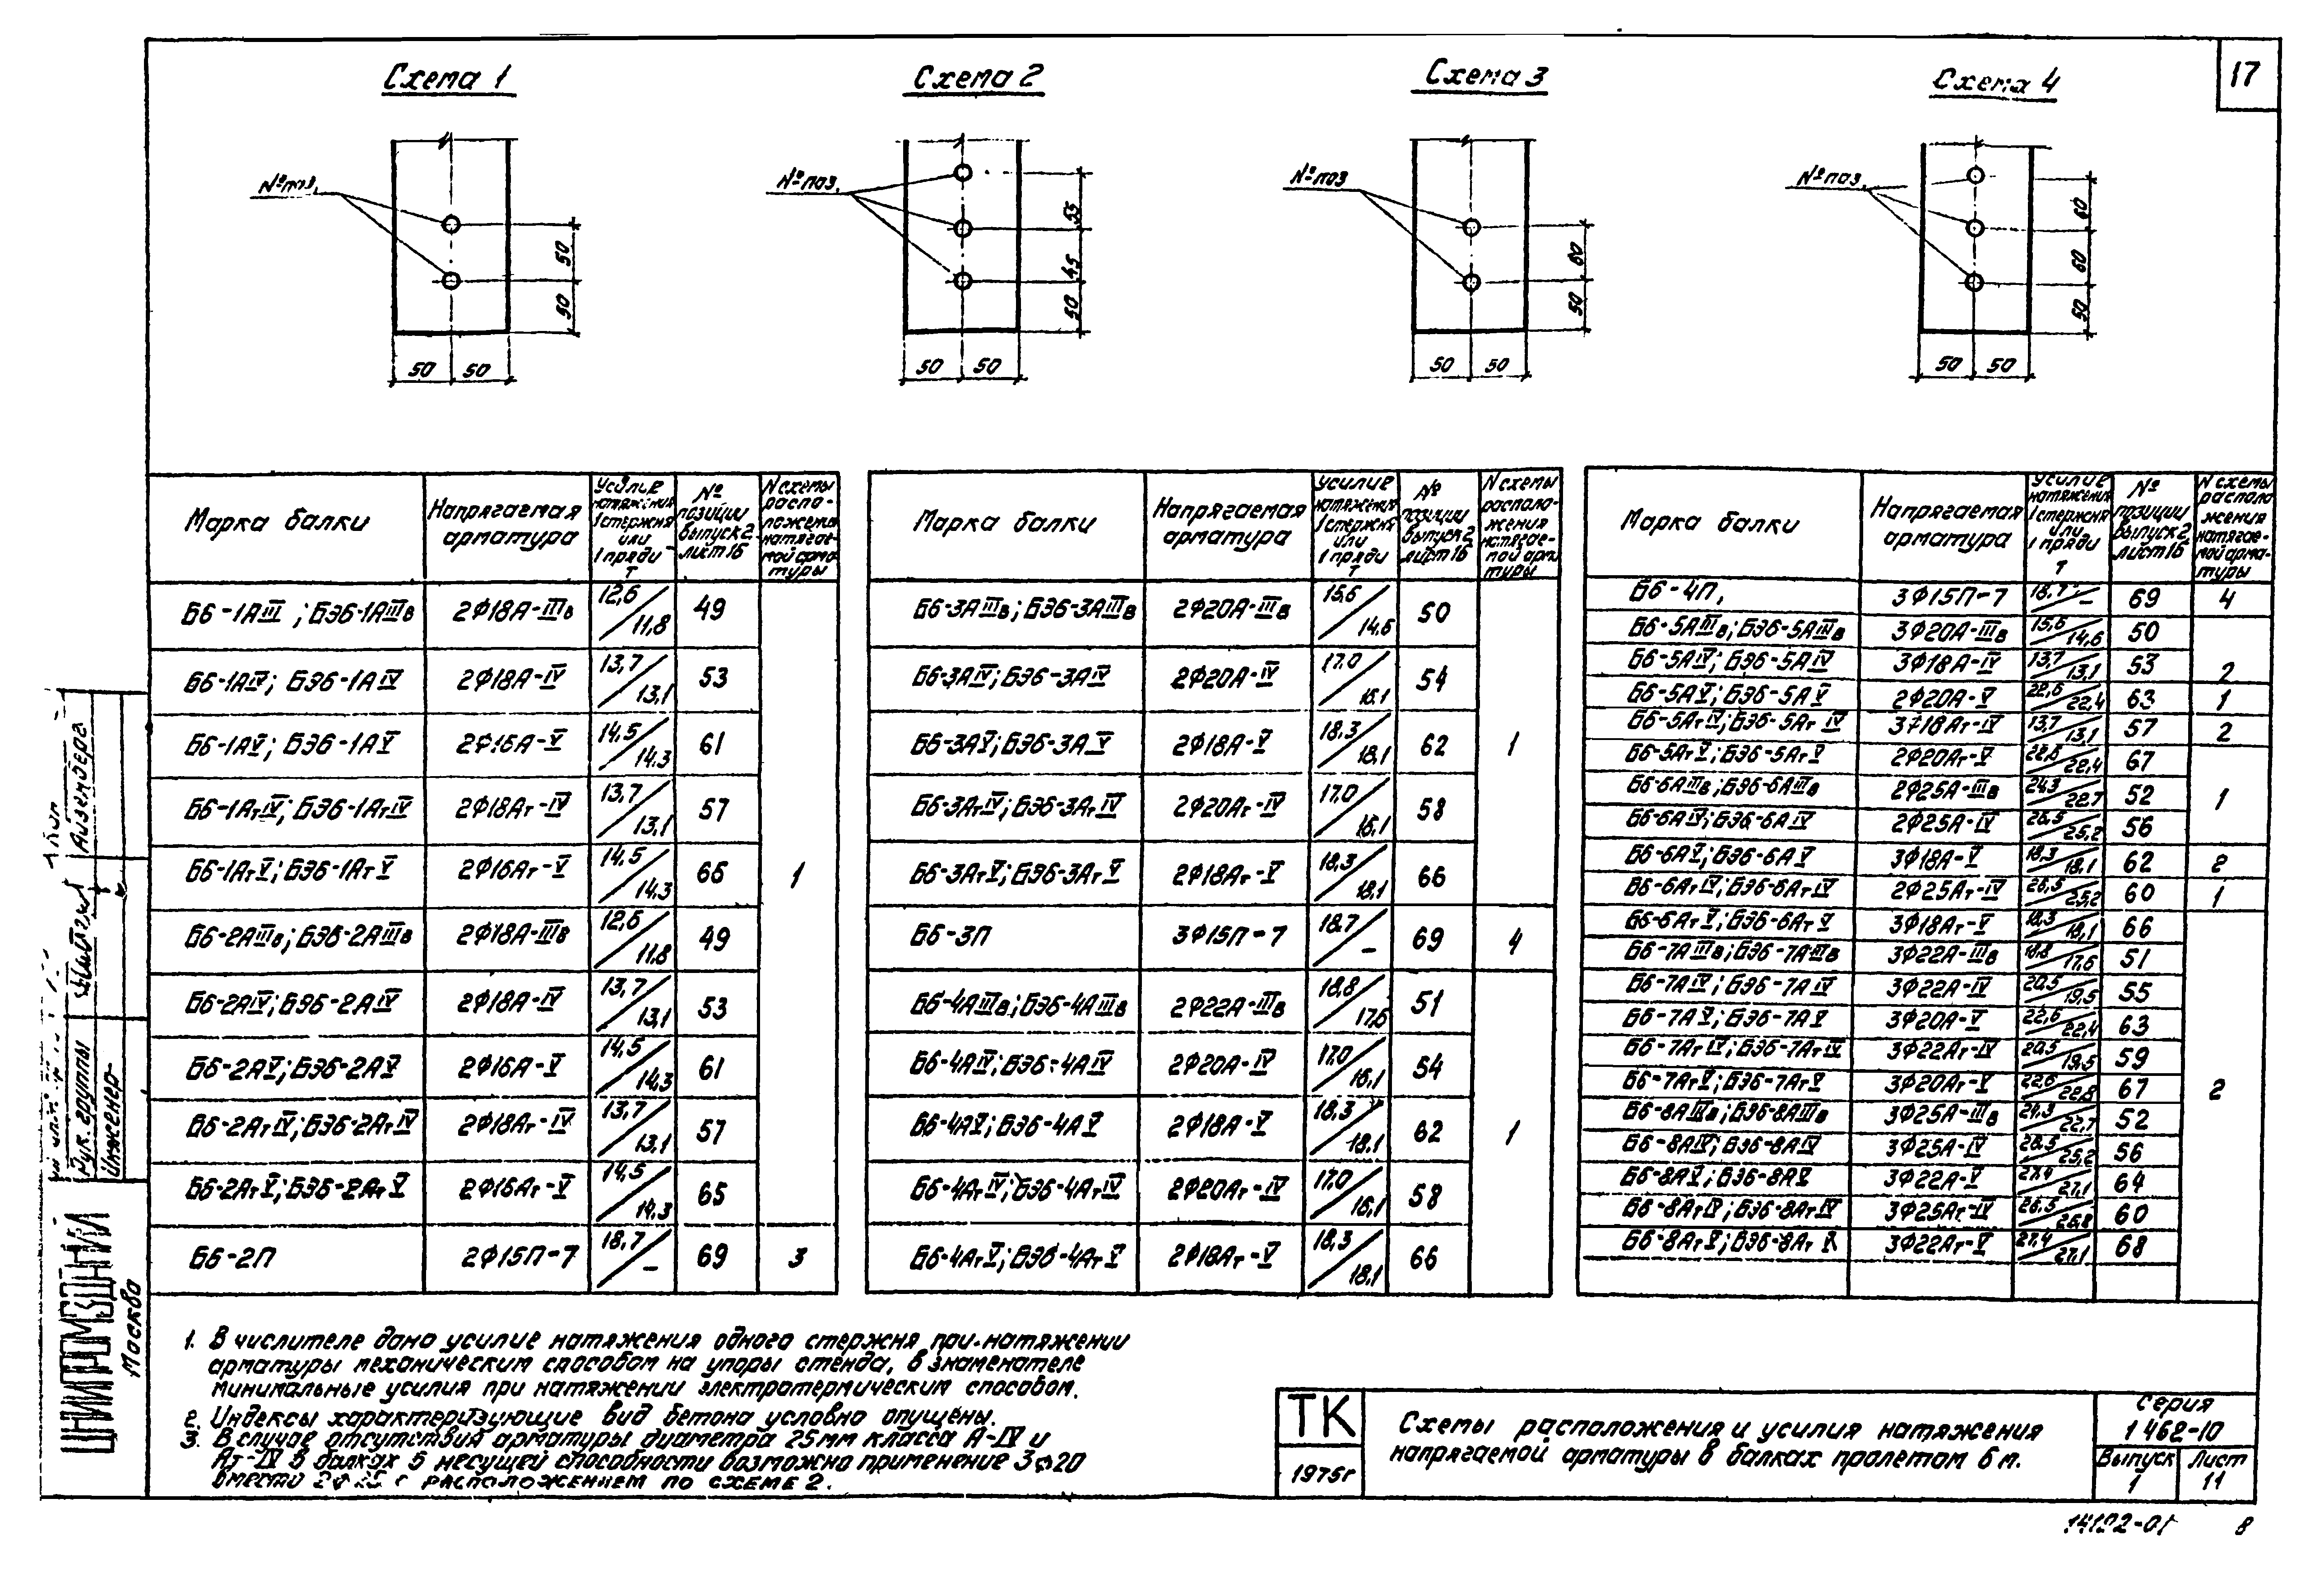 17
Схема 1
Схема 2
Схема 3
Схема 4
№ поз.
№ поз.
№ поз
№ поз.
50
50
50 50
55
45
50
50 50
60
50
50 50
60
60
50
50 50
Марка балки | Напрягаемая арматура | Усилие натяжения 1 стержня или 1 пряди Т | № позиции выпуск 2 лист 16 | N схемы расположения напрягаемой арматуры
Б6-1АIII ; БЭ6-1АIIIв | 2Ф18А-IIIв | 12,6/11,8 | 49
Б6-1АIV; БЭ6-1АIV | 2Ф18А-IV | 13,7/13,1 | 53
Б6-1АV; БЭ6-1АV | 2Ф16А-V | 14,5/14,3 | 61
Б6-1АтIV; БЭ6-1АтIV | 2Ф18Ат-IV | 13,7/13,1 | 57
Б6-1АтV; БЭ6-1АтV | 2Ф16Ат-V | 14,5/14,3 | 65 | 1
Б6-2АIIIв; БЭ6-2АIIIв | 2Ф18А-IIIв | 12,6/11,8 | 49
Б6-2АIV; БЭ6-2АIV | 2Ф18А-IV | 13,7/13,1 | 53
Б6-2АV; БЭ6-2АV | 2Ф16А-V | 14,5/14,3 | 61
Б6-2АтIV; БЭ6-2АтIV | 2Ф18Ат-IV | 13,7/13,1 | 57
Б6-2АтV; БЭ6-2АтV | 2Ф16Ат-V | 14,5/14,3 | 65
Б6-2П | 2Ф15П-7 | 18,7/– | 69 | 3
Марка балки | Напрягаемая арматура | Усилие натяжения 1 стержня или 1 пряди Т | № позиции выпуск 2 лист 16 | N схемы расположения напрягаемой арматуры
Б6-3АIIIв; БЭ6-3АIIIв | 2Ф20А-IIIв | 15,6/14,6 | 50
Б6-3АIV; БЭ6-3АIV | 2Ф20А-IV | 17,0/16,1 | 54
Б6-3АV; БЭ6-3АV | 2Ф18А-V | 18,3/18,1 | 62 | 1
Б6-3АтIV; БЭ6-3АтIV | 2Ф20Ат-IV | 17,0/16,1 | 58
Б6-3АтV; БЭ6-3АтV | 2Ф18Ат-V | 18,3/18,1 | 66
Б6-3П | 3Ф15П-7 | 18,7/– | 69 | 4
Б6-4АIIIв; БЭ6-4АIIIв | 2Ф22А-IIIв | 18,8/17,6 | 51
Б6-4АIV; БЭ6-4АIV | 2Ф20А-IV | 17,0/16,1 | 54
Б6-4АV; БЭ6-4АV | 2Ф18А-V | 18,3/18,1 | 62 | 1
Б6-4АтIV; БЭ6-4АтIV | 2Ф20Ат-IV | 17,0/16,1 | 58
Б6-4АтV; БЭ6-4АтV | 2Ф18Ат-V | 18,3/18,1 | 66
Марка балки | Напрягаемая арматура | Усилие натяжения 1 стержня или 1 пряди Т | № позиции выпуск 2 лист 16 | N схемы расположения напрягаемой арматуры
Б6-4П, | 3Ф15П-7 | 18,7/– | 69 | 4
Б6-5АIIIв; БЭ6-5АIIIв | 3Ф20А-IIIв | 15,6/14,6 | 50
Б6-5АIV; БЭ6-5АIV | 3Ф18А-IV | 13,7/13,1 | 53 | 2
Б6-5АV; БЭ6-5АV | 2Ф20А-V | 22,6/22,4 | 63 | 1
Б6-5АтIV; БЭ6-5АтIV | 3Ф18Ат-IV | 13,7/13,1 | 57 | 2
Б6-5АтV; БЭ6-5АтV | 2Ф20Ат-V | 22,6/22,4 | 67
Б6-6АIIIв; БЭ6-6АIIIв | 2Ф25А-IIIв | 24,3/22,7 | 52 | 1
Б6-6АIV; БЭ6-6АIV | 2Ф25А-IV | 26,5/25,2 | 56
Б6-6АV; БЭ6-6АV | 3Ф18А-V | 18,3/18,1 | 62 | 2
Б6-6АтIV; БЭ6-6АтIV | 2Ф25Ат-IV | 26,5/25,2 | 60 | 1
Б6-6АтV; БЭ6-6АтV | 3Ф18Ат-V | 18,3/18,1 | 66
Б6-7АIIIв; БЭ6-7АIIIв | 3Ф22А-IIIв | 18,8/17,6 | 51
Б6-7АIV; БЭ6-7АIV | 3Ф22А-IV | 20,5/19,5 | 55
Б6-7АV; БЭ6-7АV | 3Ф20А-V | 22,6/22,4 | 63
Б6-7АтIV; БЭ6-7АтIV | 3Ф22Ат-IV | 20,5/19,5 | 59
Б6-7АтV; БЭ6-7АтV | 3Ф20Ат-V | 22,6/22,8 | 67 | 2
Б6-8АIIIв; БЭ6-8АIIIв | 3Ф25А-IIIв | 24,3/22,7 | 52
Б6-8АIV; БЭ6-8АIV | 3Ф25А-IV | 26,5/25,2 | 56
Б6-8АV; БЭ6-8АV | 3Ф22А-V | 27,4/27,1 | 64
Б6-8АтIV; БЭ6-8АтIV | 3Ф25Ат-IV | 26,5/26,8 | 60
Б6-8АтV; БЭ6-8Ат | 3Ф22Ат-V | 27,4/27,1 | 68
1. В числителе дано усилие натяжения одного стержня при натяжении
арматуры механическим способом на упоры стенда, в знаменателе
минимальные усилия при натяжении электротермическим способом.
2. Индексы характеризующие вид бетона условно опущены.
3. В случае отсутствия арматуры диаметра 25мм класса А-IV и
Ат-IV в балках 5 несущей способности возможно применение 3ф20
вместо 2ф25 с расположением по схеме 2.
ТК
1975г
Схемы расположения и усилия натяжения
напрягаемой арматуры в балках пролетом 6 м.
Серия
1 462-10
Выпуск
1
Лист
11
8
Рук. группы
Инженер
Айзенберг
ЦНИИПРОМЗДАНИЙ
Москва